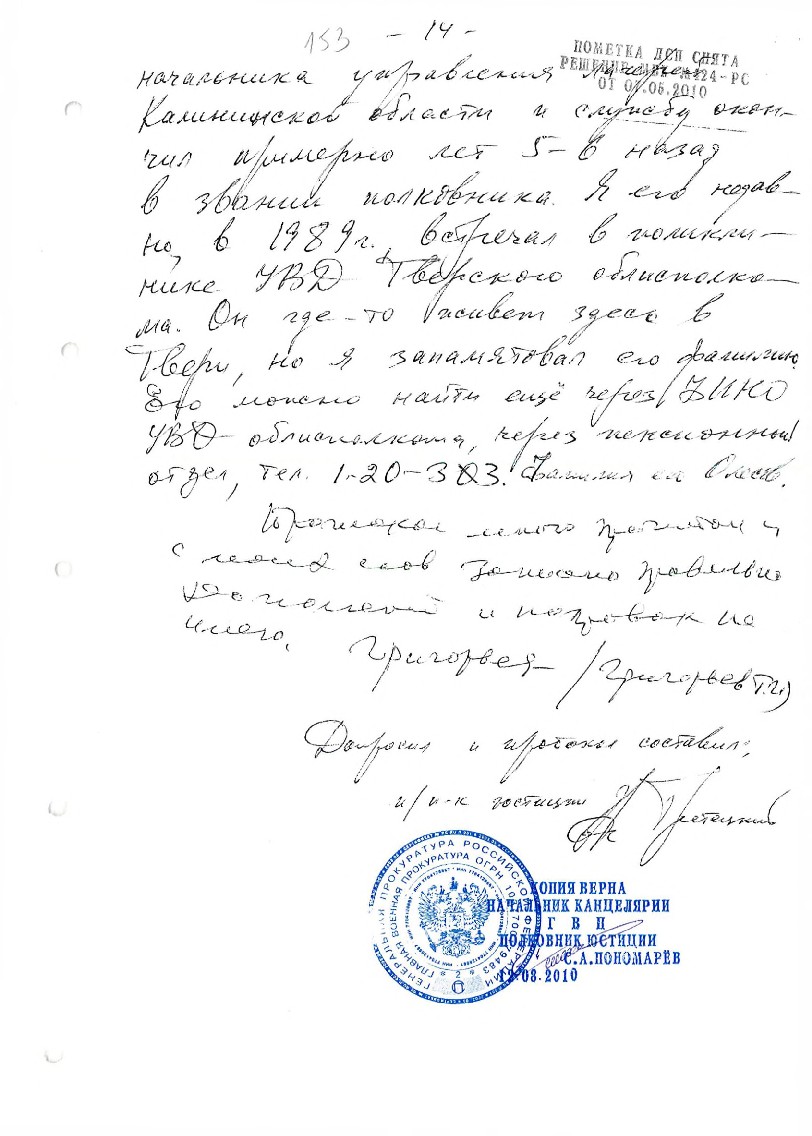 153 - 14 -
ПОМЕТКА ДСП СНЯТА
РЕШЕНИЕ №224-РС
ОТ 06.2010
начальника управления
Калининской области и службу окон-
чил примерно лет 5-6 назад
в звании полковника. Я его недав-
но, в 1989 г., встречал в поликли-
нике УВД Тверского облисполко-
ма. Он где-то живет здесь в
Твери, но я запамятовал его фамилию.
Его можно найти ещё через
УВД облисполкома, через пенсионный
отдел, тел. 1-20-303. Фамилия его
Протокол мною прочитан и
с моих слов записано правильно
дополнений и поправок не
имею.
Григорьев /Григорьев
Допросил и протокол составил:
п/п-к юстиции Третецкий
ГЕНЕРАЛЬНАЯ ПРОКУРАТУРА РОССИЙСКОЙ ФЕДЕРАЦИИ
ГЛАВНАЯ ВОЕННАЯ ПРОКУРАТУРА ОГРН
КОПИЯ ВЕРНА
НАЧАЛЬНИК КАНЦЕЛЯРИИ
Г В П
ПОЛКОВНИК ЮСТИЦИИ
С.А.ПОНОМАРЁВ
12.08.2010